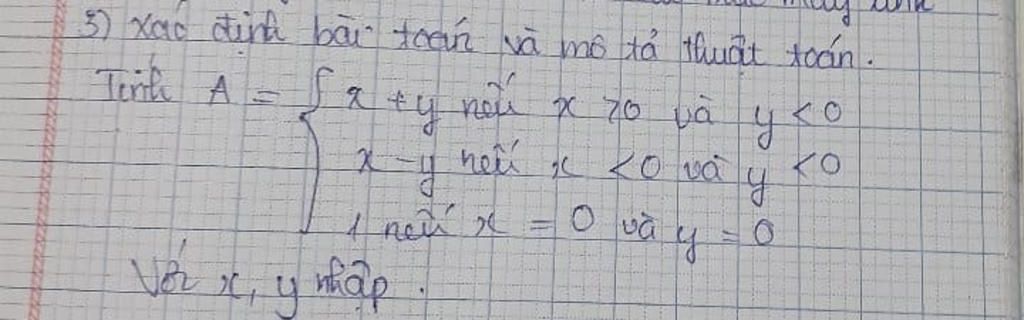 3) xác định bài toán và mô tả thuật toán.
Tính A = { x + y nếu x > 0 và y < 0
x - y nếu x < 0 và y < 0
1 nếu x = 0 và y = 0
Với x, y nhập.